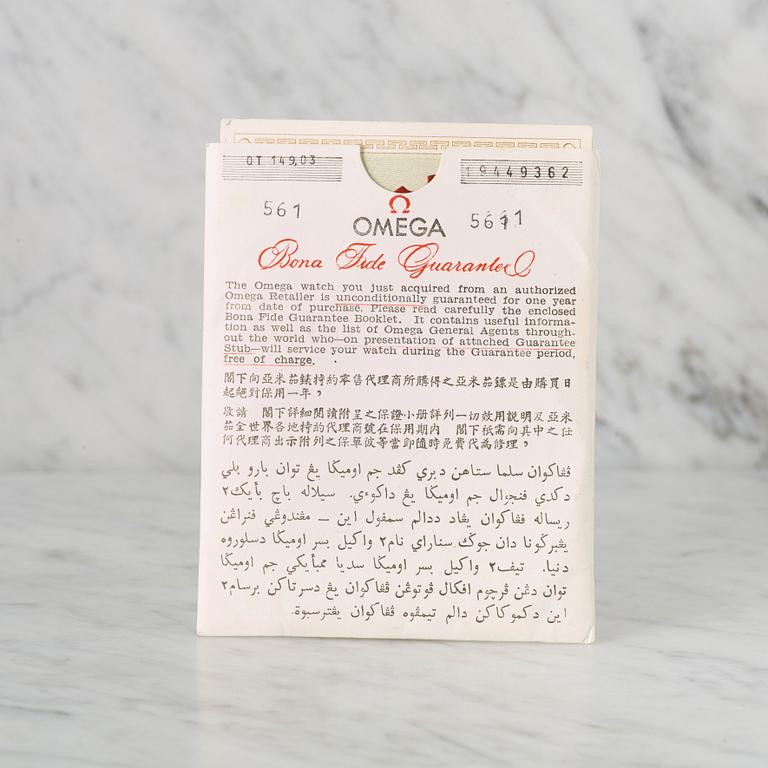 OT 149,03
19449362
561
561
Ω
OMEGA
Bona Fide Guarantee
The Omega watch you just acquired from an authorized
Omega Retailer is unconditionally guaranteed for one year
from date of purchase. Please read carefully the enclosed
Bona Fide Guarantee Booklet. It contains useful informa-
tion as well as the list of Omega General Agents through-
out the world who—on presentation of attached Guarantee
Stub—will service your watch during the Guarantee period,
free of charge.
閣下向亞米茄錶特約零售代理商所購得之亞米茄鏢是由購買日
起絕對保用一年，
敬請 閣下詳細閱讀附呈之保證小册詳列一切效用説明及亞米
茄全世界各地特約代理商號在保用期内 閣下祇需向其中之任
何代理商出示附列之保單彼等當即随時免費代為修理，
ڤڠاکوان سلما ستاهن دبري کڤد جم اوميݢا يڠ توان بارو بلي
دکدي فنجوال جم اوميݢا يڠ داکوءي. سيلاله باچ بأيک٢
رساله ڤڠاکوان يڠاد ددالم سمڤول اين – مڠندوڠي ڤنراڠن
يڠبرݢونا دان جوݢ سناراي نام٢ واکيل بسر اوميݢا دسلوروه
دنيا. تيڤ٢ واکيل بسر اوميݢا سديا ممبأيکي جم اوميݢا
توان دڠن ڤرچوم افکال ڤوتوڠن ڤڠاکوان يڠ دسرتاکن برسام٢
اين دکموکاکن دالم تيمڤوه ڤڠاکوان يڠترسبوة.